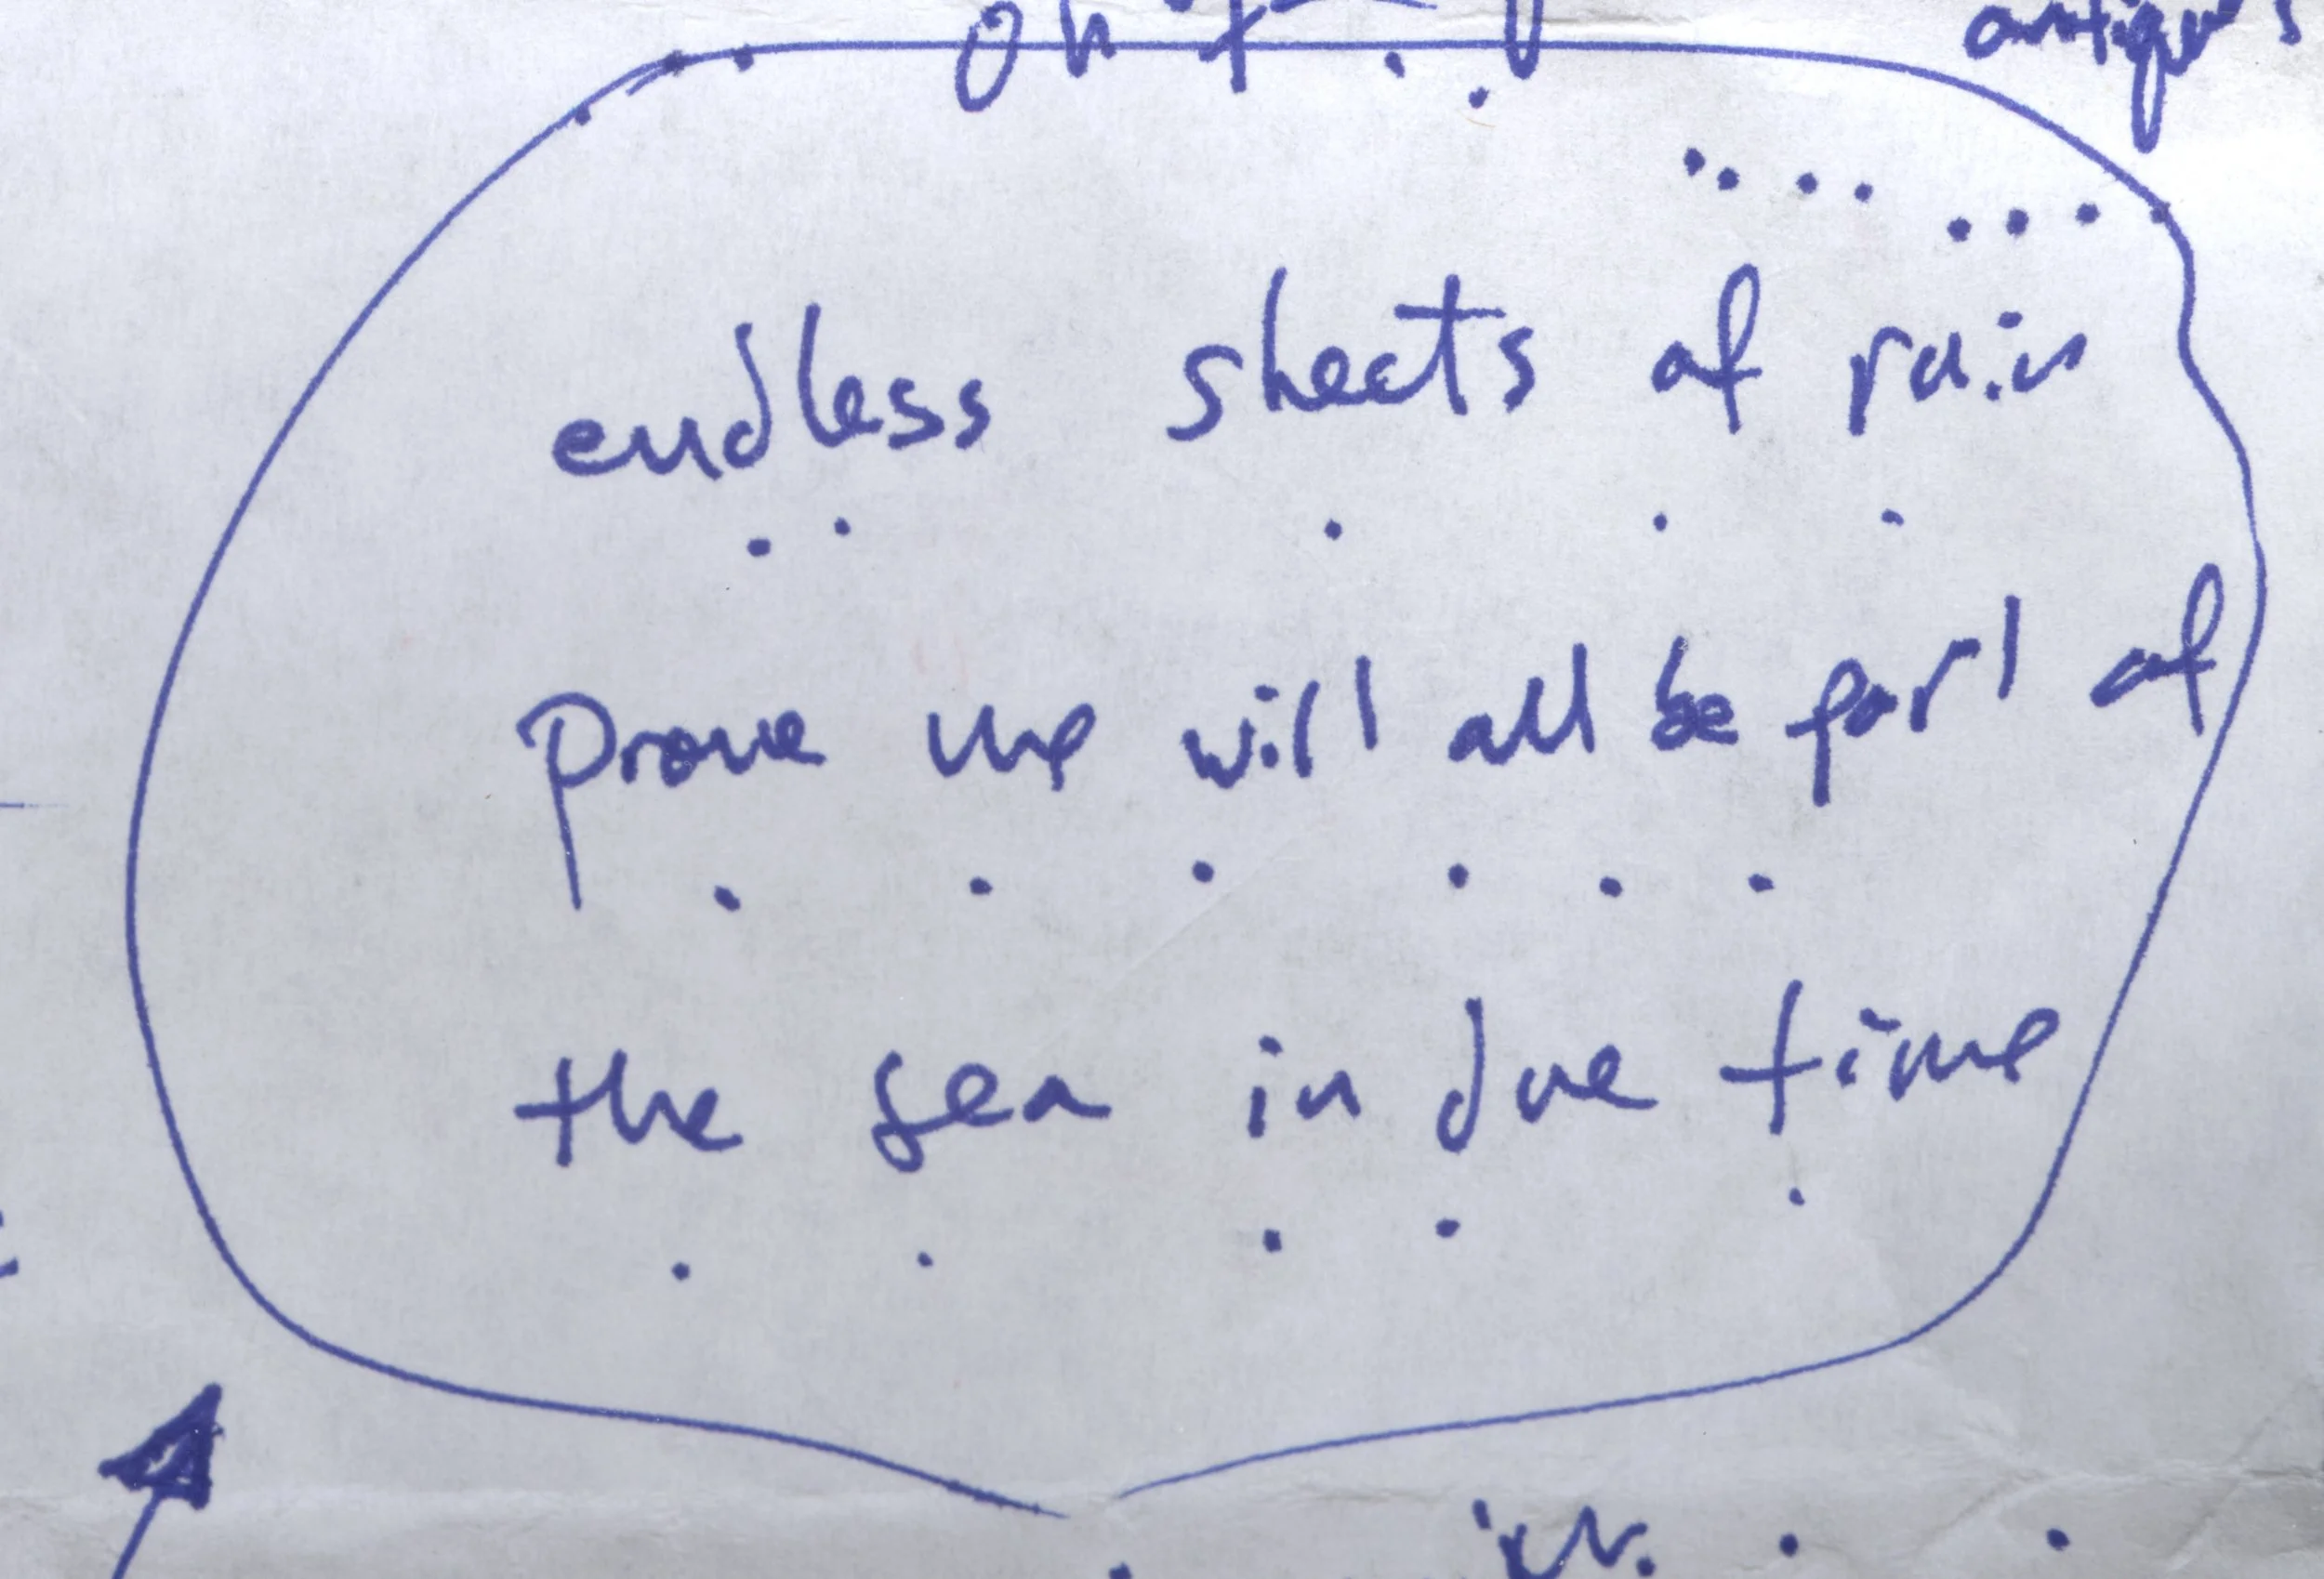 antiques
endless sheets of rain
prove we will all be part of
the sea in due time